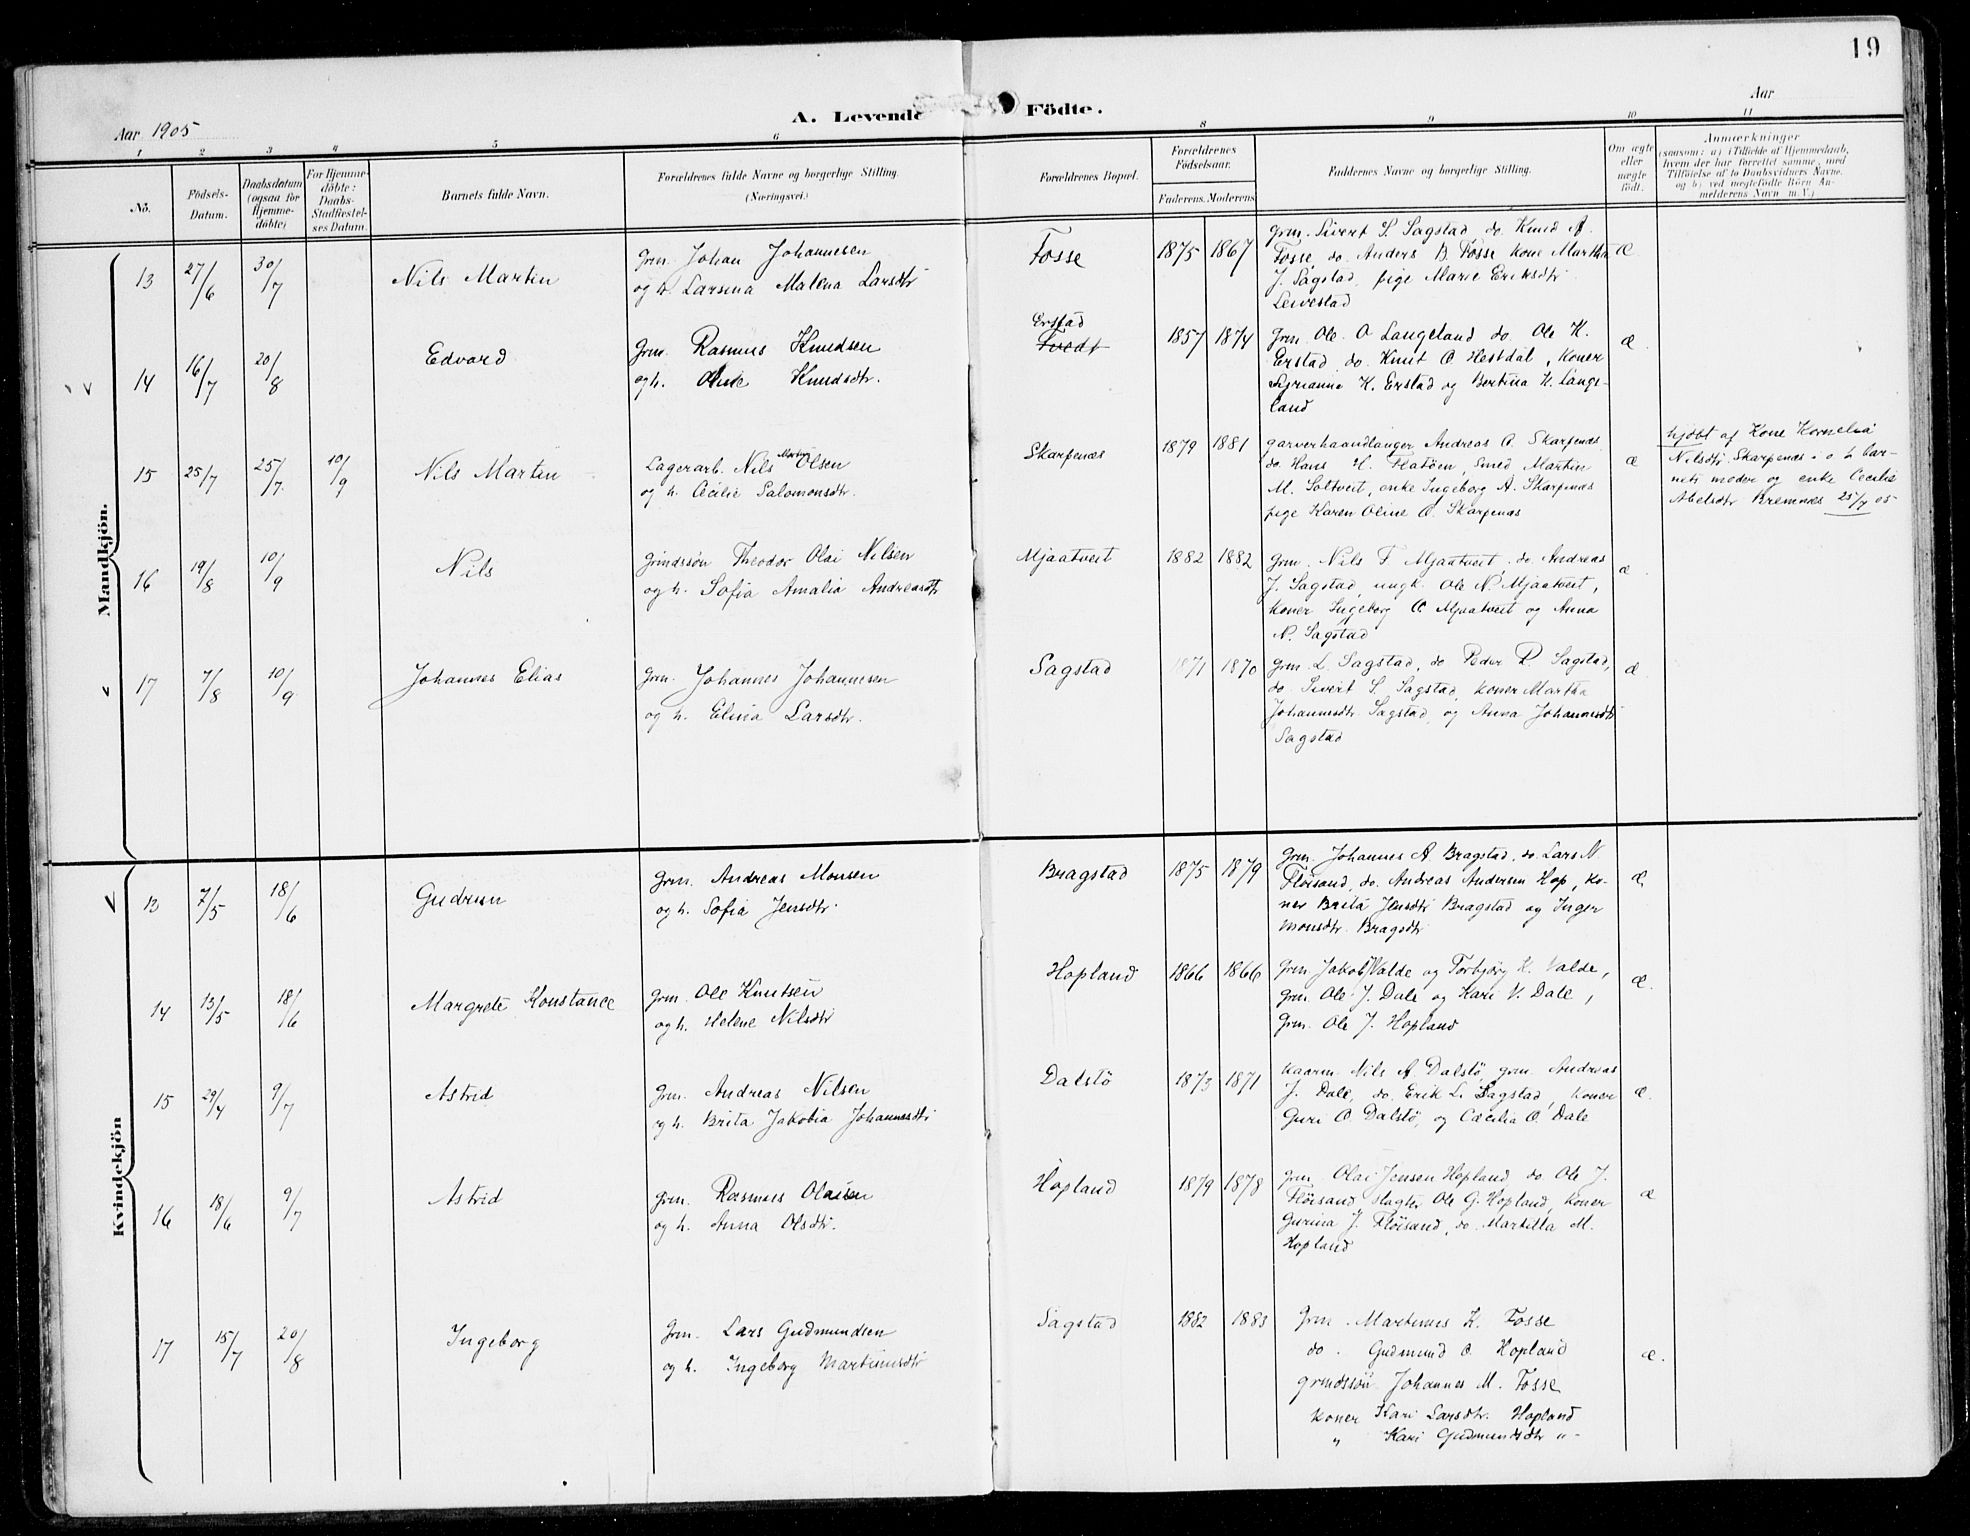 19
A. Levende Födte.
Aar 1905
Aar
1 2 3 4 5 6 8 9 10 11
No.
Födsels-Datum.
Daabsdatum (ogsaa for Hjemme-döbte)
For Hjemme-döbte: Daabs-Stadfæstel-ses Datum.
Barnets fulde Navn.
Forældrenes fulde Navne og borgerlige Stilling. (Næringsvei.)
Forældrenes Bopæl.
Forældrenes Födselsaar.
Faderens. Moderens.
Faddernes Navne og borgerlige Stilling.
Om ægte eller uægte födt.
Anmærkninger
(saasom: a) i Tilfælde af Hjemmedaab,
hvem der har forrettet samme, med
Tilföielse af to Daabsvidners Navne,
og b) ved uægtefödte Börn An-
melderens Navn m. V.)
Mandkjön.
13 27/6 30/7 Nils Martin
Grm. Johan Johannesen
og h. Larsina Malena Larsdtr
Fosse 1875 1867
Grm. Sivert S. Sagstad do. Knud A.
Fosse, do. Anders B. Fosse kone Martha
J. Sagstad, pige Marie Eriksdtr
Leivestad
Æ
14 16/7 20/8 Edvard
Grm. Rasmus Knudsen
og h. Knudsdtr.
Erstad
Tvedt
1857 1874
Grm. Ole O Langeland do. Ole K.
Erstad, do. Knut O. Hestdal, Koner
Syrianna K. Erstad og Bertina K. Lange-
land
æ
15 25/7 25/7 10/9 Nils Martin
Lagerarb. Nils Martin Olsen
og h. Cecilie Salomonsdtr.
Skarpenæs 1879 1881
garverhaandlanger Andreas O. Skarpenæs
do. Hans H. Flatöen, Smed Martin
M. Soltveit, enke Ingeborg A. Skarpenæs
pige Karen Oline O. Skarpenæs
æ
hjdbt af Kone Kornelia
Nilsdtr. Skarpenæs i o h bar-
nets moder og enke Cecilie
Abelsdtr Bremnes 25/7 05
16 19/8 10/9 Nils
Grmdssön Theodor Olai Nilsen
og h. Sofia Amalia Andreasdtr
Mjaatveit 1882 1882
Grm. Nils T Mjaatveit. do. Andreas
J. Sagstad, ungk. Ole N. Mjaatveit,
koner Ingeborg O. Mjaatveit og Anna
N. Sagstad
æ
17 7/8 10/9 Johannes Elias
Grm. Johannes Johannesen
og h. Elina Larsdtr.
Sagstad 1871 1870
Grm. L. Sagstad, do Peder P. Sagstad,
do. Sivert S. Sagstad, koner Martha
Johannesdtr. Sagstad, og Anna Johannesdtr
Sagstad
æ
Kvindekjön
13 7/5 18/6 Gudrun
Grm. Andreas Monsen
og h. Sofia Jensdtr.
Bragstad 1875 1879
Grm. Johannes A. Bragstad, do. Lars N.
Flöisand, do. Andreas Andersen Hop, ko-
ner Brita Jensdtr Bragstad og Inger
Monsdtr. Bragsdtr
Æ
14 13/5 18/6 Margrete Konstance
Grm. Ole Knutsen
og h. Helene Nilsdtr
Hopland 1866 1866
Grm Jakob Valde og Torbjörg K. Valde,
Grm. Ole J. Dale og Kari V. Dale,
Grm. Ole J. Hopland
Æ.
15 29/4 9/7 Astrid
Grm. Andreas Nilsen
og h. Brita Jakobia Johannesdtr
Dalstö 1873 1871
kaarm. Nils A Dalstö, grm. Andreas
J. Dale, do. Erik L. Sagstad, koner
Guri O. Dalstø, og Cæcilia O. Dale
æ.
16 18/6 9/7 Astrid
Grm. Rasmus Olaisen
og h. Anna Olsdtr.
Hopland 1879 1878
Grm. Olai Jensen Hopland do Ole J.
Flöisand, slagter Ole G. Hopland, koner
Gurina J. Flöisand, do. Markitta M.
Hopland
æ
17 15/7 20/8 Ingeborg
Grm. Lars Gudmundsen
og h. Ingeborg Martinusdtr
Sagstad 1882 1883
Grm. Martinus K. Fosse
do. Gudmund O. Hopland
grmdssön Johannes M. Fosse
koner Kari Larsdtr. Hopland
" Kari Gudmundsdtr "
æ.